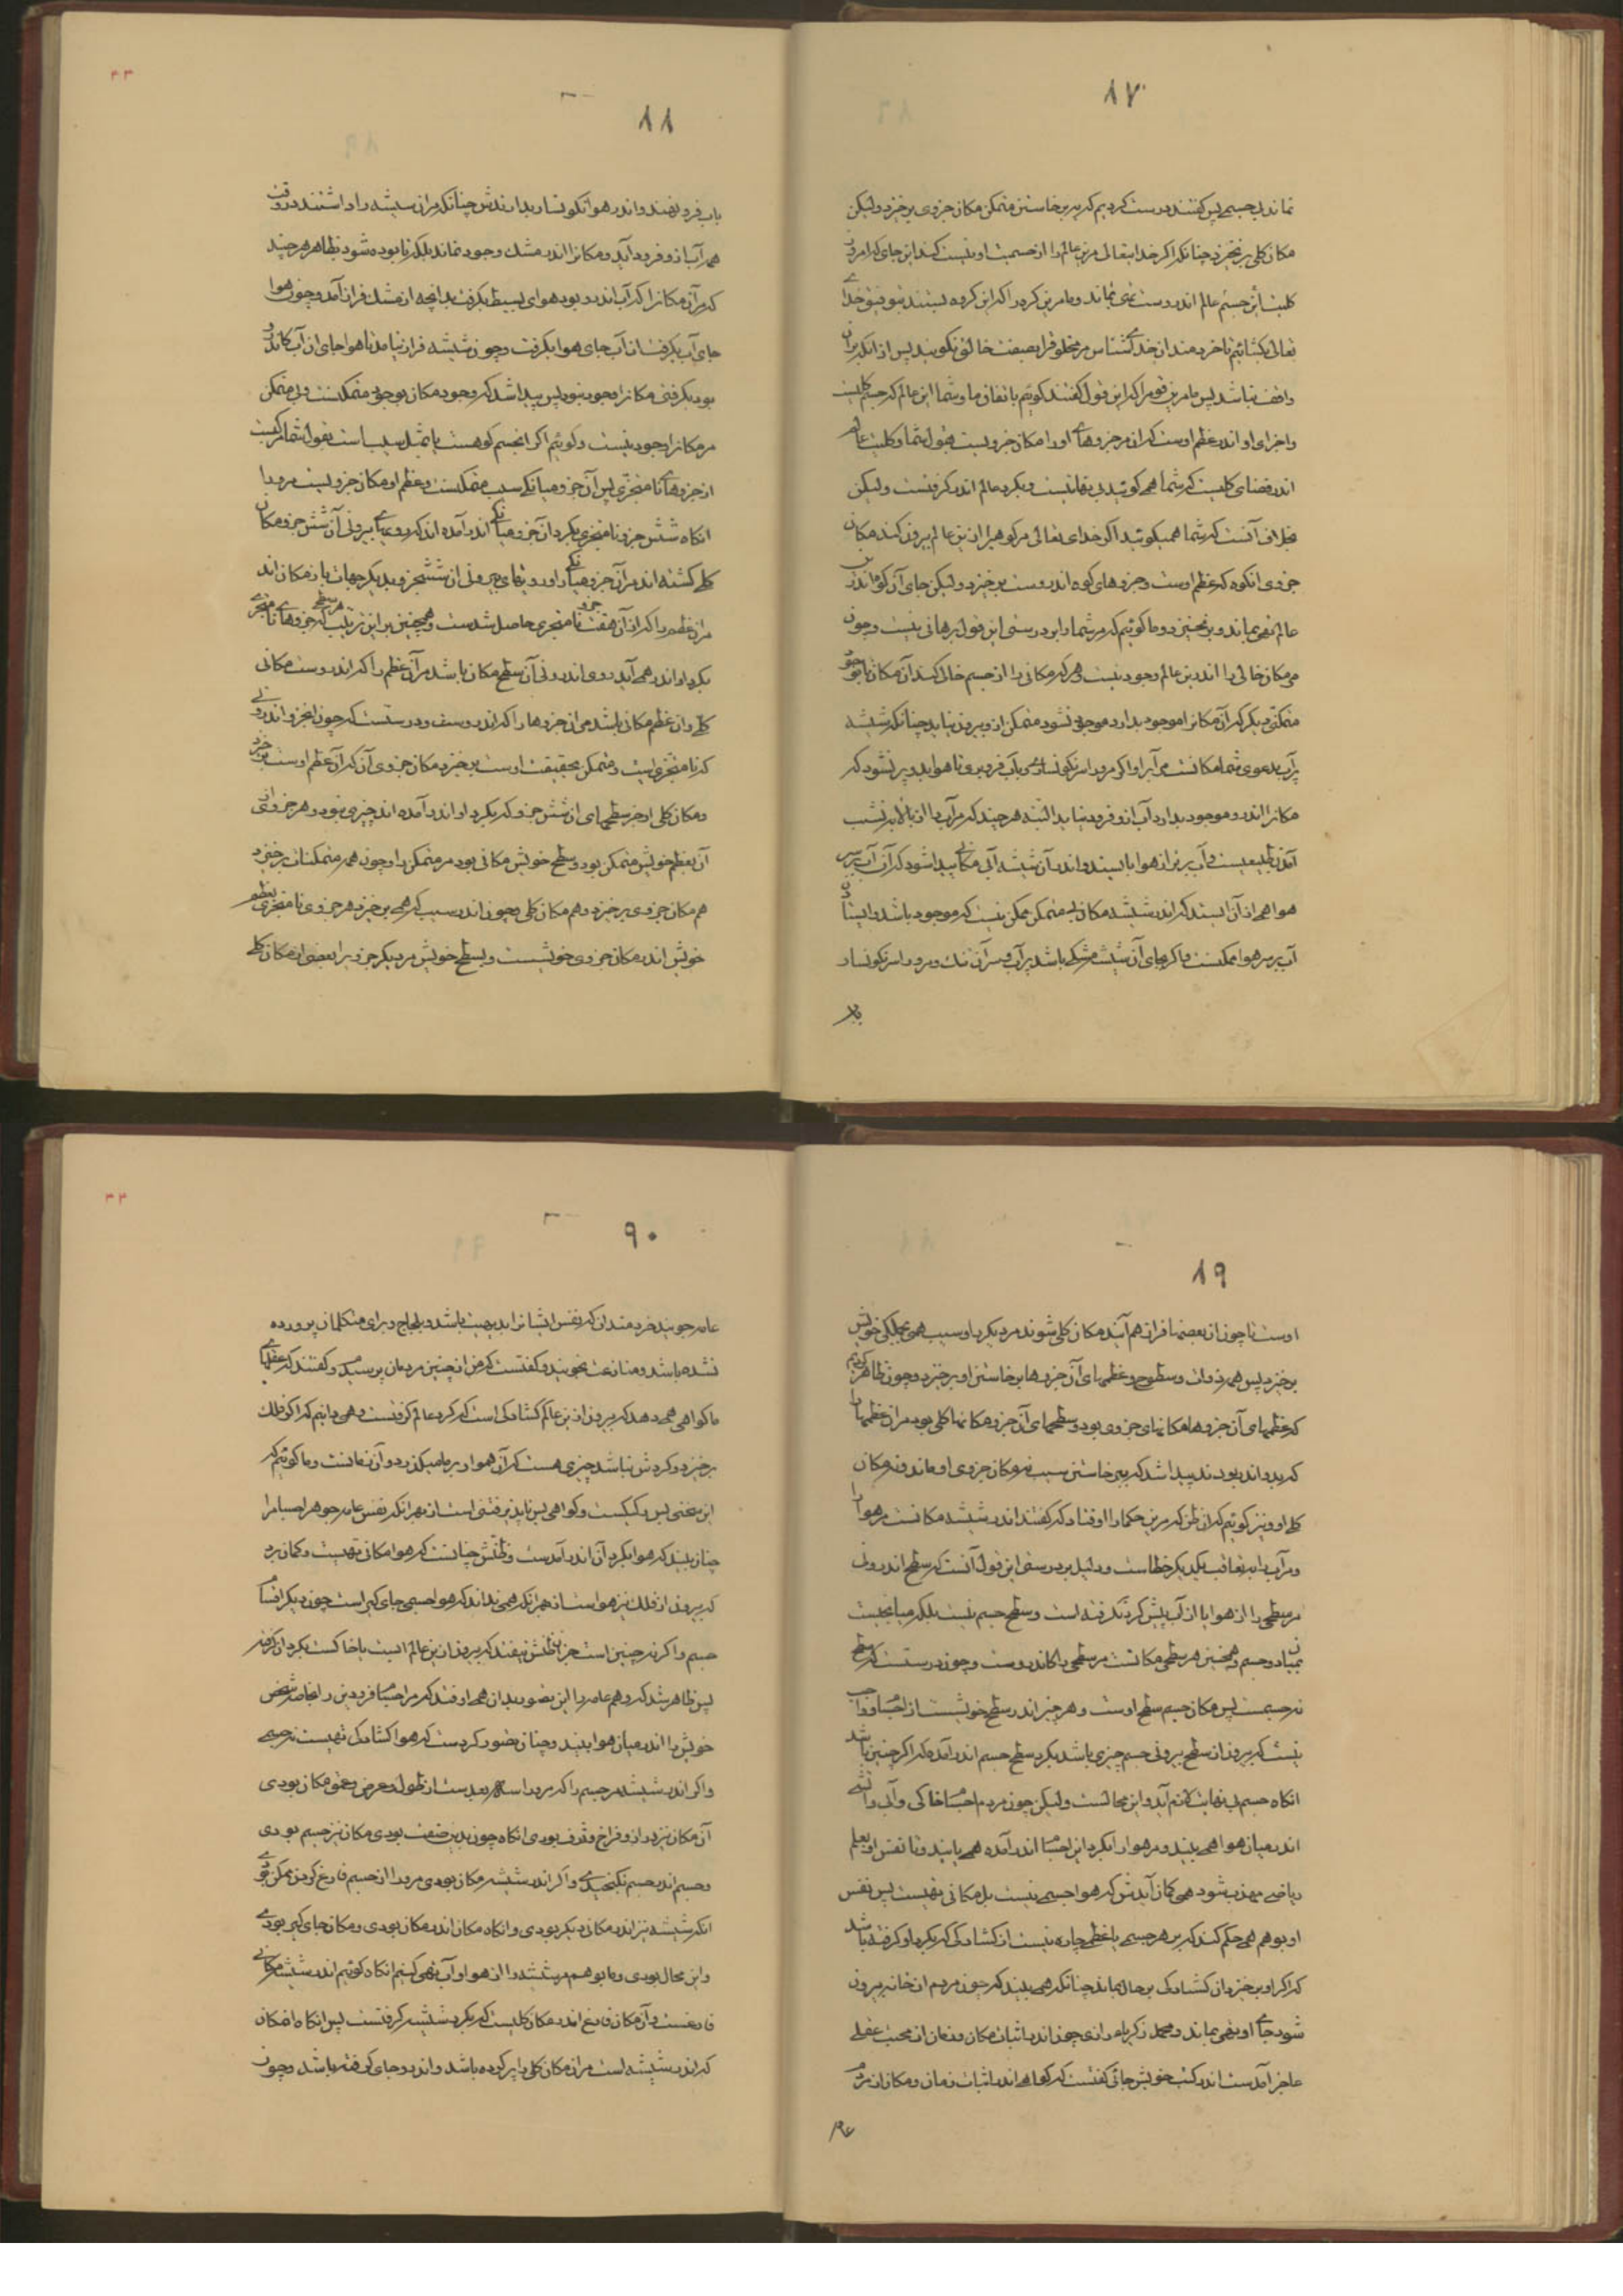 ۸۷
نماند بی‌جسم پس گفتند درست کردیم که ببرخاستن متمکن مکان جزوی برخیزد ولیکن
مکان کلی برنخیزد چنانکه اگر خدایتعالی مرین عالم را از جسمیت او نیست کند این جای که امروز
کلیت این جسم عالم اندروست تهی بماند و ما مرین گروه را که این کرده‌بینند بتوفیق خدای
تعالی بگشائیم تا خردمندان خدای شناس مر مخلوق را بصفت خالق نگویند پس از آنکه بران
واقف نباشد پس ما مرین قوم را که این قول گفتند گوئیم باتفاق ما و شما این عالم که جسم کلیست
و اجزای او اندر عظم اوست که آن مر جزوهای او را مکان جزویست بقول شما و کلیت عالم
اندر فضای کلیست که شما همی گوئید بی‌نهایتست و بگرد عالم اندر گرفتست ولیکن
بخلاف آنست که شما همیگوئید اگر خدای تعالی مر کوهی را ازین عالم بیرون کند مکان
جزوی آن کوه که عظم اوست و جزوهای کوه اندروست برخیزد ولیکن جای آن کوه اندرین
عالم تهی بماند و برنخیزد و ما گوئیم که مر شما را بر درستی این قول برهانی نیست و چون
مر مکان خالی را اندرین عالم وجود نیست و هر که مکانی را از جسم خالی کند آن مکان تا بوجود
متمکنی دیگر که آن مکانرا موجود بدارد موجود نشود متمکن ازو بیرون نیاید چنانکه شیشه
پرآب بدعوی شما مکانست مر آبرا و اگر مرو را سرنگونسار بآب فرو بری تا هوا بدو بر نشود که
مکانرا اندرو موجود بدارد آب ازو فرود نیاید البته هر چند که مر آبرا از بالا بر نشیب
آمدن طبیعیست و آب برتر از هوا بایستد و اندر آن شیشه آبی مکانی پیدا شود که آن آب بر سر
هوا همی ازان ایستد که اندر شیشه مکان بی‌متمکن ممکن نیست که موجود باشد و ایستادن
آب بر سر هوا ممکنست و اگر بجای آن شیشه مشکی باشد پر آب و سر آن تنگ و مرو را سرنگونسار
بآب
۸۸
بآب فرو نهند و اندر هوا نگونسار بدارندش چنانکه مر آن شیشه را داشتند در وقت
همه آب ازو فرود آید و مکانرا اندر مشک وجود نماند بلکه نابوده شود بظاهر هر چند
که مر آن مکانرا که آب اندرو بود هوای بسیط بگرفت بدانچه از مشک فراز آمد و چون هوا
جای آب بگرفت آن آب جای هوا بگرفت و چون شیشه فراز نیامد تا هوا جای آن آب کاندرو
بود بگرفتی مکانرا وجود نبود پس پیدا شد که وجود مکان بوجود متمکنست و بی متمکن
مر مکانرا وجود نیست و گوئیم اگر آنجسم کوهست یا بمثل سیب است بقول شما مرکب
از جزوهای نامتجزی پس آن جزو میانگی سیب متمکنست و عظم او مکان جزویست مرو را
آنگاه شش جزو نامتجزی بگرد آن جزو میانگی اندر آمده‌اند که رویهای بیرونی آن شش جزو مکان
کلی گشته‌اند مر آن جزو میانگی را و رویهای بیرونی آن ششجزو بدیگر جهات باز مکان‌اند
مر آن عظم را که از آن هفت جزو نامتجزی حاصل شدست و همچنین برین ترتیب هر سطحی که جزوهای نامتجزی
بگرد او اندر همی‌آید روی اندرونی آن سطح مکان باشد مر آن عظم را که اندروست مکانی
کلی و آن عظم مکانی باشد مر آن جزوها را که اندروست و درستست که چون آنجزو اندرونی
که نامتجزی است و متمکن بحقیقت اوست برخیزد مکان جزوی آن که آن عظم اوست برخیزد
و مکان کلی او جز سطحهای آن شش جزو که بگرد او اندر آمده‌اند چیزی نبود و هر جزوی از
آن بعظم خویش متمکن بود و بسطح خویش مکانی بود مر متمکن را و چون همه متمکنان برخیزد
هم مکان جزوی برخیزد و هم مکان کلی و چون اندر سیب که همی برخیزد هر جزوی نامتجزی بعظم
خویش اندر مکان جزوی خویشست و بسطح خویش مر دیگر جزو را بعضی از مکان کلی
۸۹
اوست تا چون آن بعضها فراز هم آیند مکان کلی شوند مر دیگر را و سیب همی بجملگی خویش
برخیزد پس همه ذوات و سطوح و عظمهای آن جزوها برخاستن او برخیزد و چون ظاهر کردیم
که عظمهای آن جزوها مکانهای جزوی بود و سطحهای آن جزوها مکانها کلی بود مر آن عظمها را
که بدو اندر بودند پیدا شد که ببرخاستن سیب نه مکان جزوی او ماند و نه مکان
کلی او و نیز گوئیم که آن ظن که مرین حکما را اوفتاد که گفتند اندر شیشه مکانست مر هوا را
و مر آب را بتعاقب یکدیگر خطاست و دلیل بر درستی این قول آنست که سطح اندرونی
مر سطحی را از هوا یا از آب پیش گرد نگرفته است و سطح جسم نیست بلکه میانجیست
میان دو جسم و همچنین هر سطحی مکانست مر سطحی را کاندروست و چون درستست که سطح
نه جسمست پس مکان جسم سطح اوست و هر چیز اندر سطح خویشست از اجسام و واجب
نیست که بیرون از سطح بیرونی جسم چیزی باشد بگرد سطح جسم اندر آمده که اگر چنین باشد
آنگاه جسم بی‌نهایت لازم آید و این محالست ولیکن چون مردم اجسام خاکی و آبی و آتشی
اندر میان هوا همی بیند و مر هوا را بگرد این اجسام اندر آمده همی یابند و تا نفس او بعلم
ریاضی مهذب شود همی گمان آیدش که هوا جسم نیست بل مکانی تهیست پس نفس
او بوهم همی حکم کند که بر هر جسمی با عظمی چاره نیست از گشادگی که بگرد او گرفته باشد
که اگر او برخیزد آن گشادگی بر حال بماند چنانکه همی بیند که چون مردم از خانه بیرون
شود جای او تهی بماند و محمد زکریای رازی چون اندر اثبات مکان و زمان از حجت عقلی
عاجز آمدست اندر کتب خویش جائی گفتست که گواهی اندر اثبات زمان و مکان از مردم
عامه
۹۰
عامه جویند خردمندان که نفس ایشانرا بدیهت باشد و بلجاج و برای متکلمان پرورده
نشده باشد و منازعت نجویند و گفتست که من از چنین مردمان پرسیدم و گفتند که عقلهای
ما گواهی همی دهد که بیرون ازین عالم گشادگی است که گرد عالم گرفتست و همی دانیم که اگر فلک
برخیزد و گردش نباشد چیزی هست که آن هموار بر ما میگذرد و آن زمانست و ما گوئیم که
این سخنی بس رکیکست و گواهی بس ناپذیرفتنی است از بهر آنکه نفس عامه جوهر اجسام را
چنان بیند که هوا بگرد آن اندر آمدست و ظنش چنانست که هوا مکانی تهیست و گمان برد
که بیرون از فلک نیز هواست از بهر آنکه همی نداند که هوا جسمی جای گیر است چون دیگر اقسام
جسم و اگر نه چنین است جز آن ظنش نیفتد که بیرون ازین عالم آبست یا خاکست بگرد آن گرفته
پس ظاهر شد که وهم عامه را این تصور بدان همی اوفتد که مر اجسام فرودین را بخاصه شخص
خویش را اندر میان هوا بیند و چنان تصور کردست که هوا گشادگی تهیست نه جسمی
و اگر اندر شیشه مر جسم را که مرو را سه بعدست از طول و عرض و عمق مکان بودی
آن مکان نیز دراز و فراخ و ژرف بودی آنگاه چون بدین صفت بودی مکان نیز جسم بودی
و جسم اندر جسم نگنجیدی و اگر اندر شیشه مکان بودی مرو را از جسم فارغ کردن ممکن بودی
آنکه شیشه نیز اندر مکان دیگر بودی و آنگاه مکان اندر مکان بودی و مکان جای گیر بودی
و این محال بودی و ما بوهم مر شیشه را از هوا و آب تهی کنیم آنگاه گوئیم اندر شیشه مکانی
فارغست و آن مکان فارغ اندر مکان کلیست که بگرد شیشه گرفتست پس آنگاه آن مکان
که اندر شیشه است مر آن مکان کلی را پر کرده باشد و اندرو جای گرفته باشد و چون